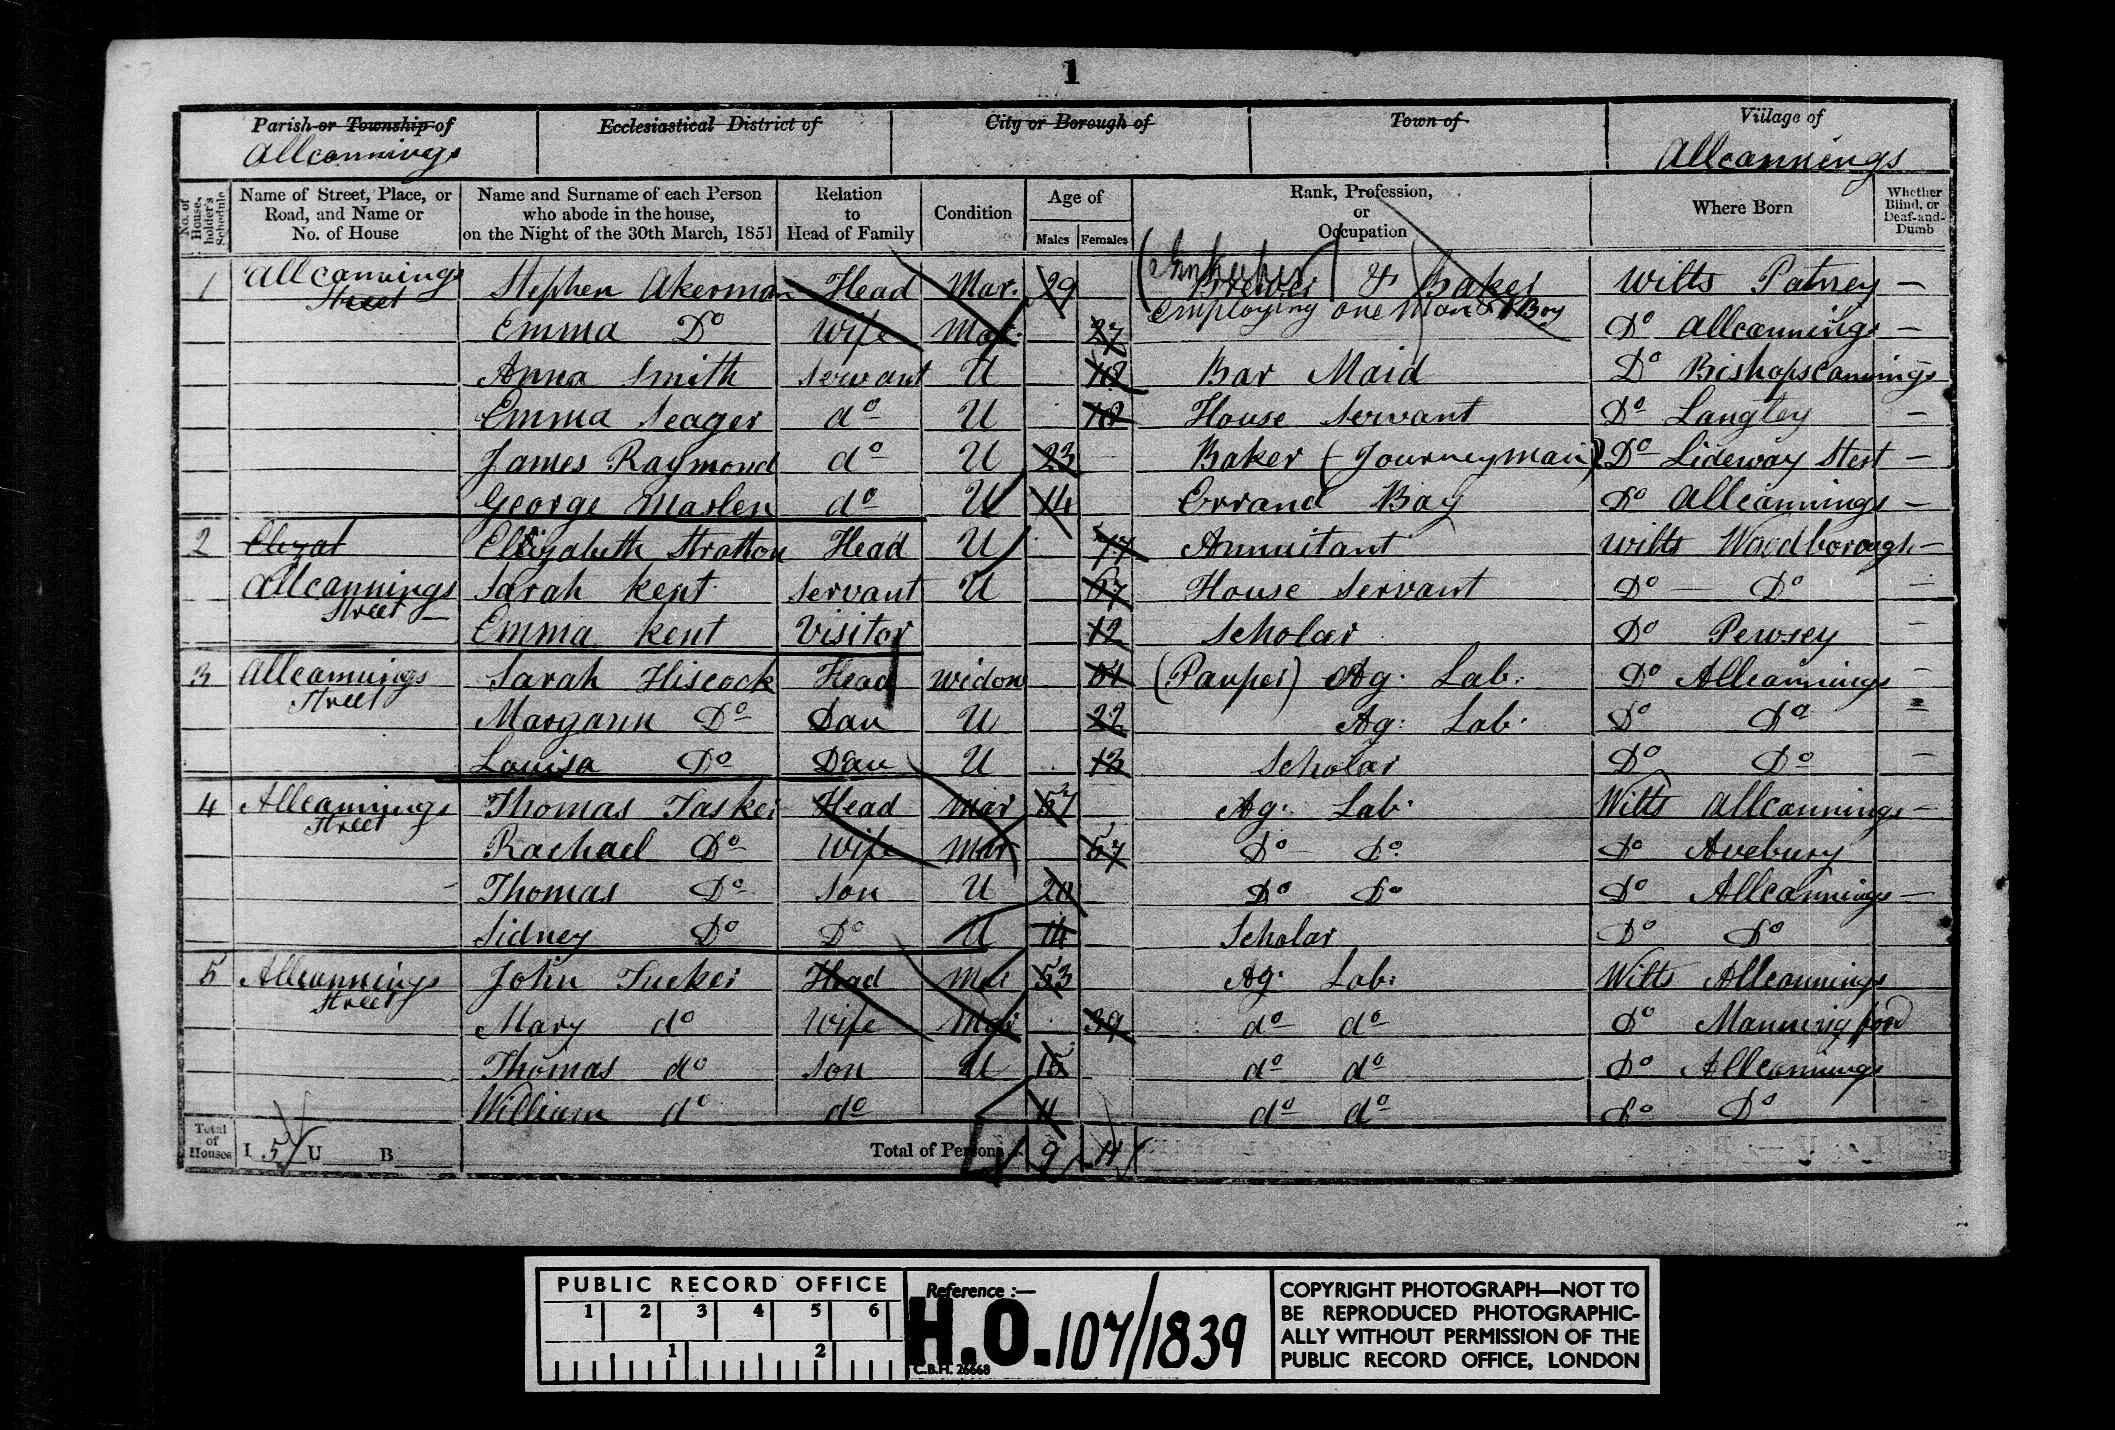 1
Parish or Township of Ecclesiastical District of City or Borough of Town of Village of
Allcannings Allcannings
No. of House-holder's Schedule Name of Street, Place, or Road, and Name or No. of House Name and Surname of each Person who abode in the house, on the Night of the 30th March, 1851 Relation to Head of Family Condition Age of Males Females Rank, Profession, or Occupation Where Born Whether Blind, or Deaf-and-Dumb
1 Allcannings Street Stephen Akerman Head Mar. 29 (Innkeeper) Brewer & Baker Wilts Patney —
employing one Man & 1 Boy
Emma Do Wife Mar. 27 Do Allcannings —
Anna Smith Servant U 18 Bar Maid Do Bishopscannings —
Emma Seager do U 18 House Servant Do Langley —
James Raymond do U 23 Baker (Journeyman) Do Lideway Stert —
George Maslen do U 14 Errand Boy Do Allcannings —
2 Elizat Elizabeth Stratton Head U 77 Annuitant Wilts Woodborough —
Allcannings Street — Sarah Kent Servant U 67 House Servant Do — Do —
Emma Kent Visitor 12 Scholar Do Pewsey —
3 Allcannings Street Sarah Hiscock Head Widow (Pauper) Ag. Lab: Do Allcannings —
Margann Do Dau U 22 Ag: Lab. Do Do =
Louisa Do Dau U 13 Scholar Do Do —
4 Allcannings Street Thomas Tasker Head Mar 57 Ag. Lab. Wilts Allcannings —
Rachael Do Wife Mar 57 Do Do. Do Avebury
Thomas Do Son U 20 Do Do Do Allcannings —
Sidney Do Do U 14 Scholar Do Do
5 Allcannings Street John Tucker Head Mar 53 Ag. Lab: Wilts Allcannings
Mary do Wife Mar 39 do do Do Manningford
Thomas do Son U 15 do do Do Allcannings
William do do 11 do do Do Do
Total of Houses I 5 U B Total of Persons 9 11
PUBLIC RECORD OFFICE
1 2 3 4 5 6
1 2
Reference :—
H.O. 107/1839
C.B.H. 26668
COPYRIGHT PHOTOGRAPH—NOT TO
BE REPRODUCED PHOTOGRAPHIC-
ALLY WITHOUT PERMISSION OF THE
PUBLIC RECORD OFFICE, LONDON